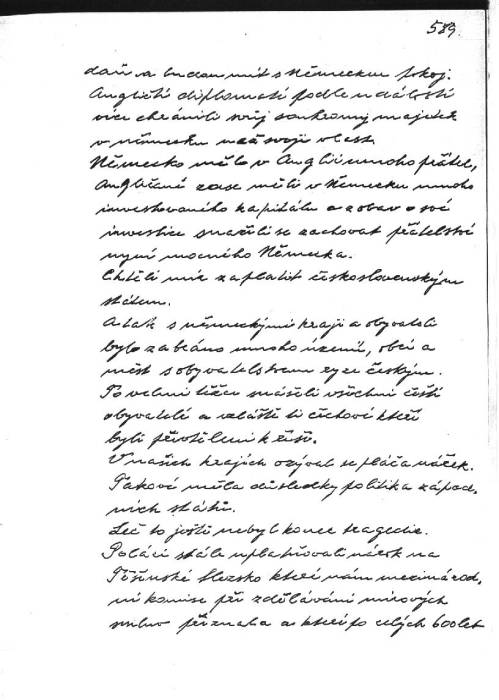 589.
daň a budou mít s Německem pokoj.
Angličtí diplomati podle událostí
více chránili svůj soukromý majetek
v německu než svoji vlast.
Německo mělo v Anglii mnoho přátel,
Angličané zase měli v Německu mnoho
investovaného kapitálu a z obav o své
investice snažili se zachovat přátelství
nyní mocného Německa.
Chtěli mír zaplatit československým
státem.
A tak s německými kraji a obyvateli
bylo zabráno mnoho území, obcí a
měst s obyvatelstvem ryze českým.
To velmi těžce snášeli všichni čeští
obyvatelé a zvláště ti čechové kteří
byli přivtěleni k říši.
V našich krajích ozýval se pláč a nářek.
Takové měla důsledky politika západ,
ních států.
Leč to ještě nebyl konec tragedie.
Poláci stále uplatňovali nárok na
Těšínské Slezsko které nám mezinárod,
ní komise při zdělávání mírových
smluv přiznala a které po celých 600 let